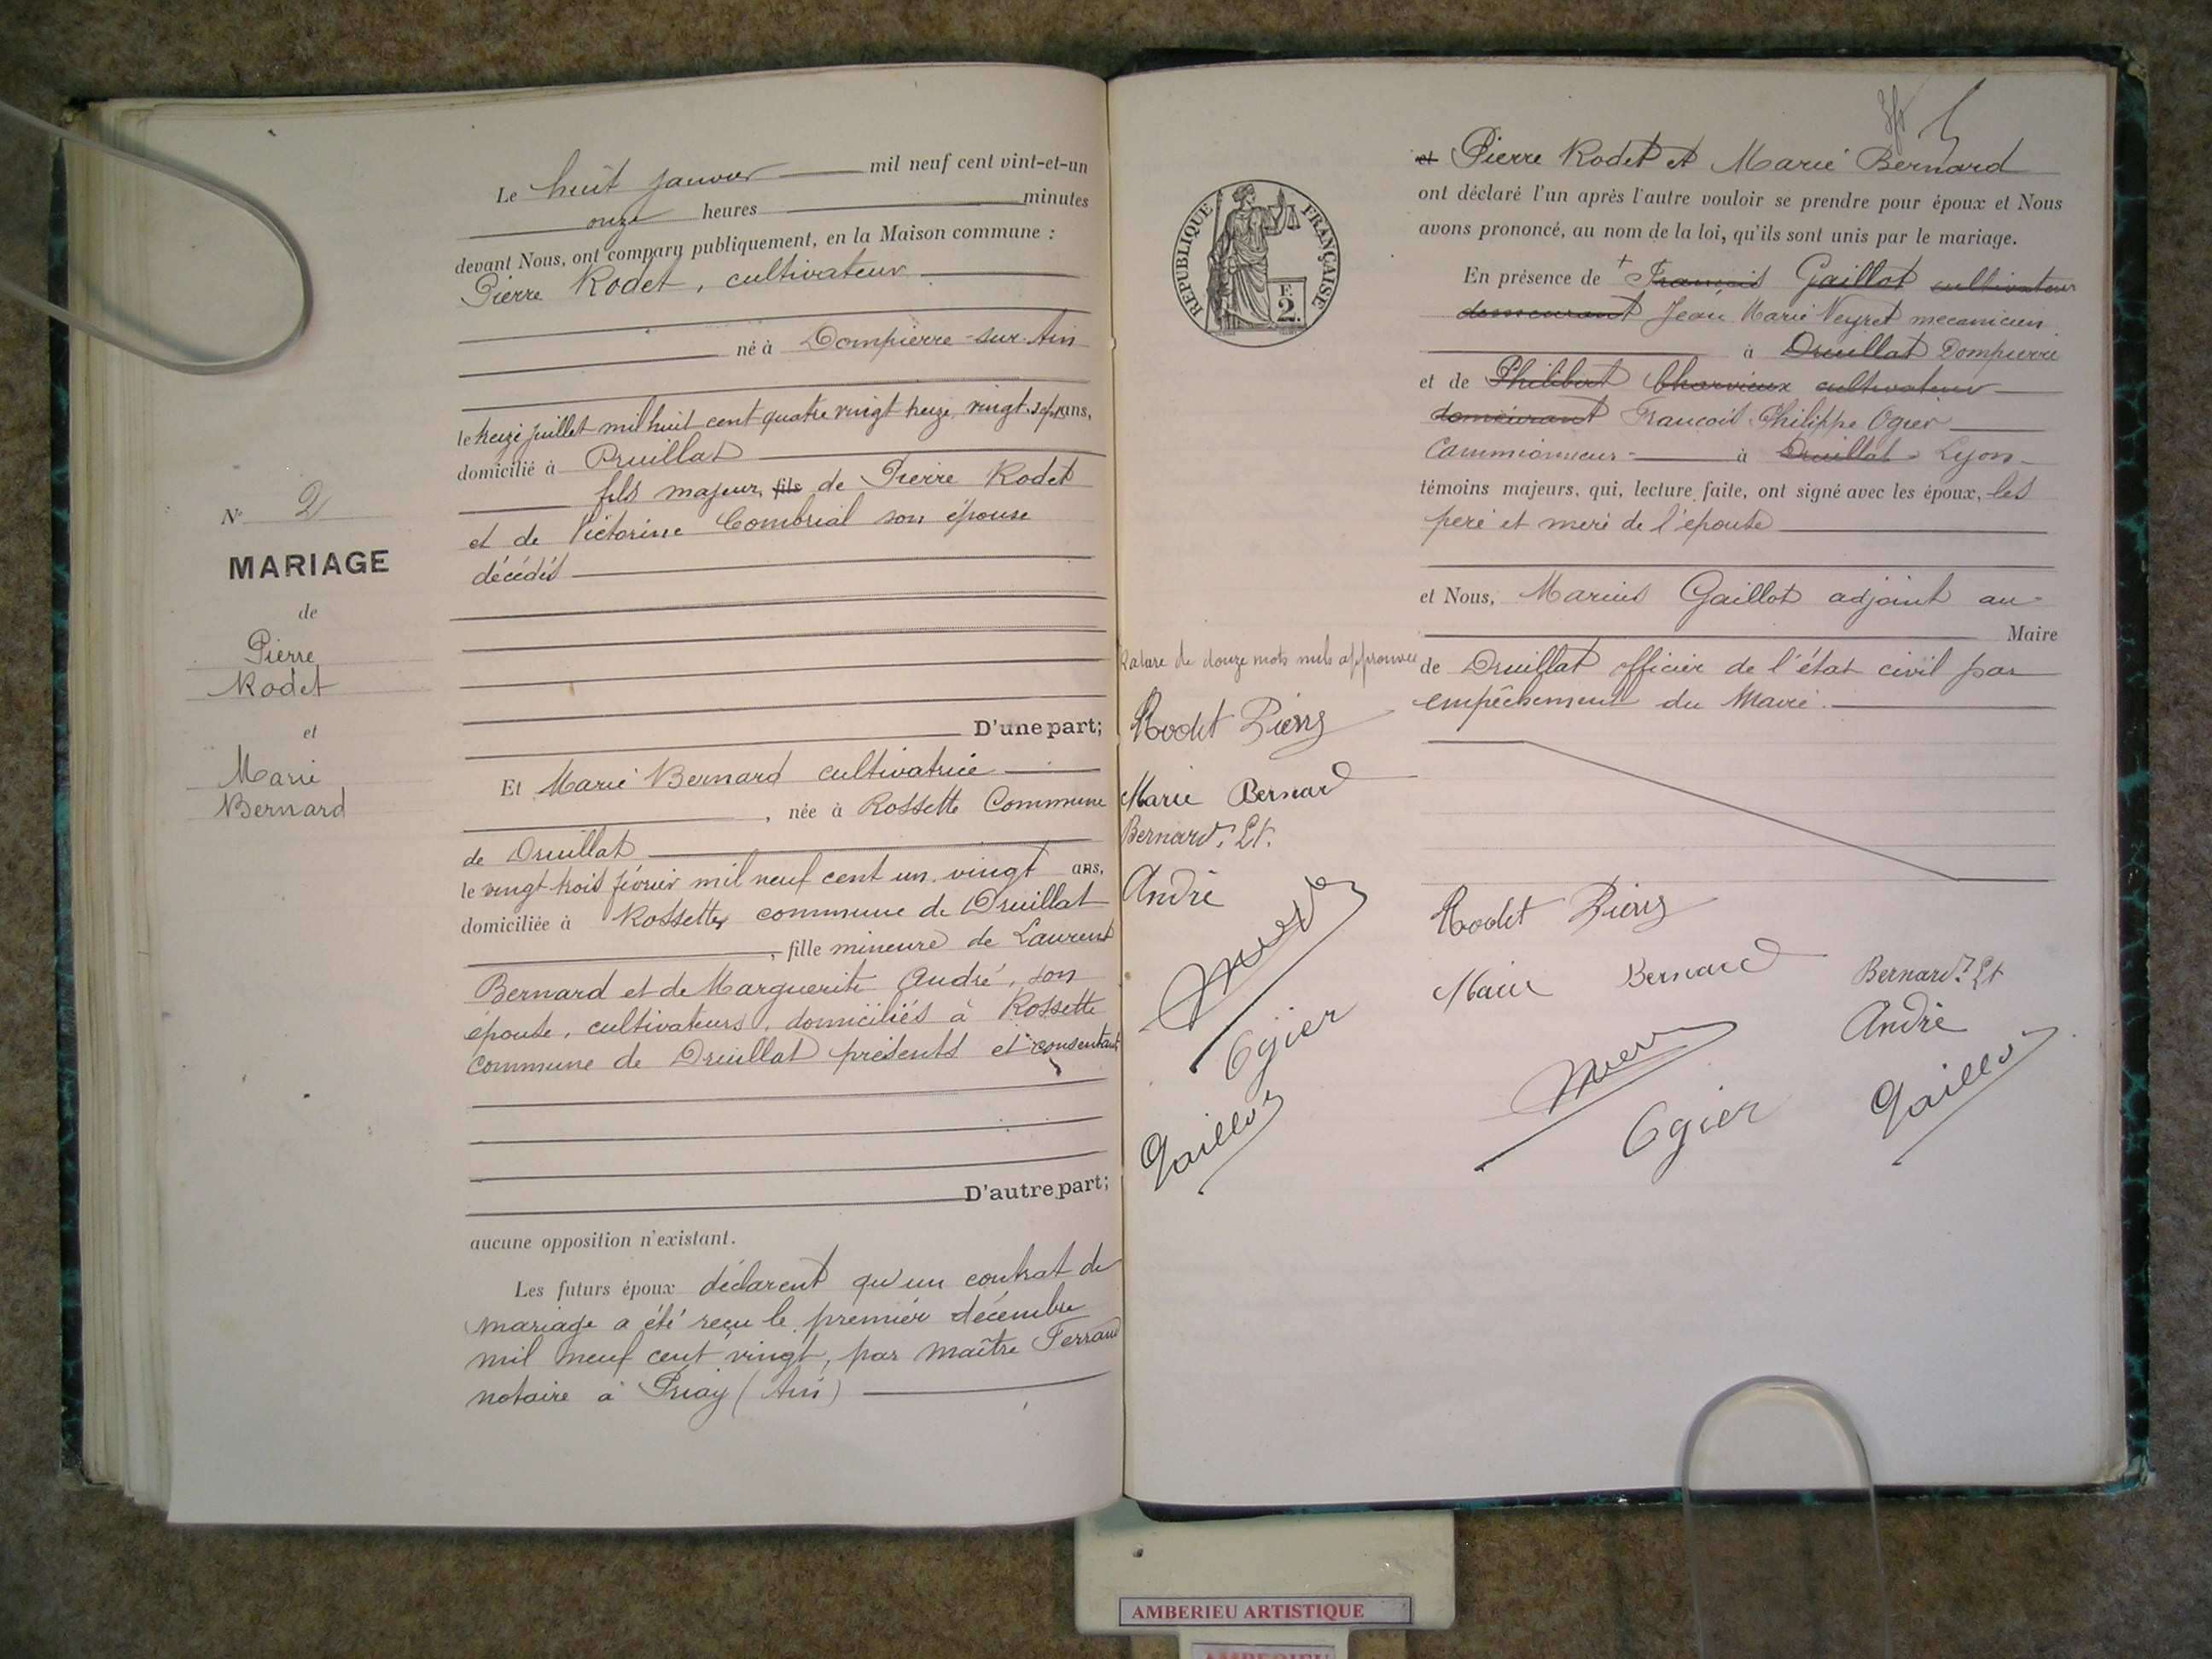 Le huit janvier mil neuf cent vint-et-un
onze heures minutes
devant Nous, ont comparu publiquement, en la Maison commune :
Pierre Rodet, cultivateur
né à Dompierre-sur-Ain
le treize juillet mil huit cent quatre vingt treize, vingt-sept ans,
domicilié à Druillat
fils majeur, fils de Pierre Rodet
et de Victorine Combrial son épouse
décédés
N° 2
MARIAGE
de
Pierre
Rodet
et
Marie
Bernard
D'une part;
Et Marie Bernard cultivatrice
, née à Rossette Commune
de Druillat
le vingt trois février mil neuf cent un vingt ans,
domiciliée à Rossette, commune de Druillat
, fille mineure de Laurent
Bernard et de Marguerite André, son
épouse, cultivateurs, domiciliés à Rossette
commune de Druillat présents et consentant
D'autre part;
aucune opposition n'existant.
Les futurs époux déclarent qu'un contrat de
mariage a été reçu le premier décembre
mil neuf cent vingt, par maître Ferrand
notaire à Priay (Ain)
REPUBLIQUE FRANÇAISE
F.
2.
et Pierre Rodet et Marie Bernard
ont déclaré l'un après l'autre vouloir se prendre pour époux et Nous
avons prononcé, au nom de la loi, qu'ils sont unis par le mariage.
En présence de + François Gaillot cultivateur
demeurant Jean Marie Veyret mecanicien
à Druillat Dompierre
et de Philibert Charvieux cultivateur
demeurant François Philippe Ogier
Cammionneur à Druillat Lyon
témoins majeurs, qui, lecture faite, ont signé avec les époux, les
père et mère de l'épouse
et Nous, Marius Gaillot adjoint au
Maire
de Druillat officier de l'état civil par
empêchement du Maire.
Rature de douze mots nuls approuvée
Rodet Pierre
Marie Bernard
Bernard Lt.
André
Ogier
Gaillot
Rodet Pierre
Marie Bernard
Bernard Lt
André
Ogier
Gaillot
AMBERIEU ARTISTIQUE
AMBERIEU